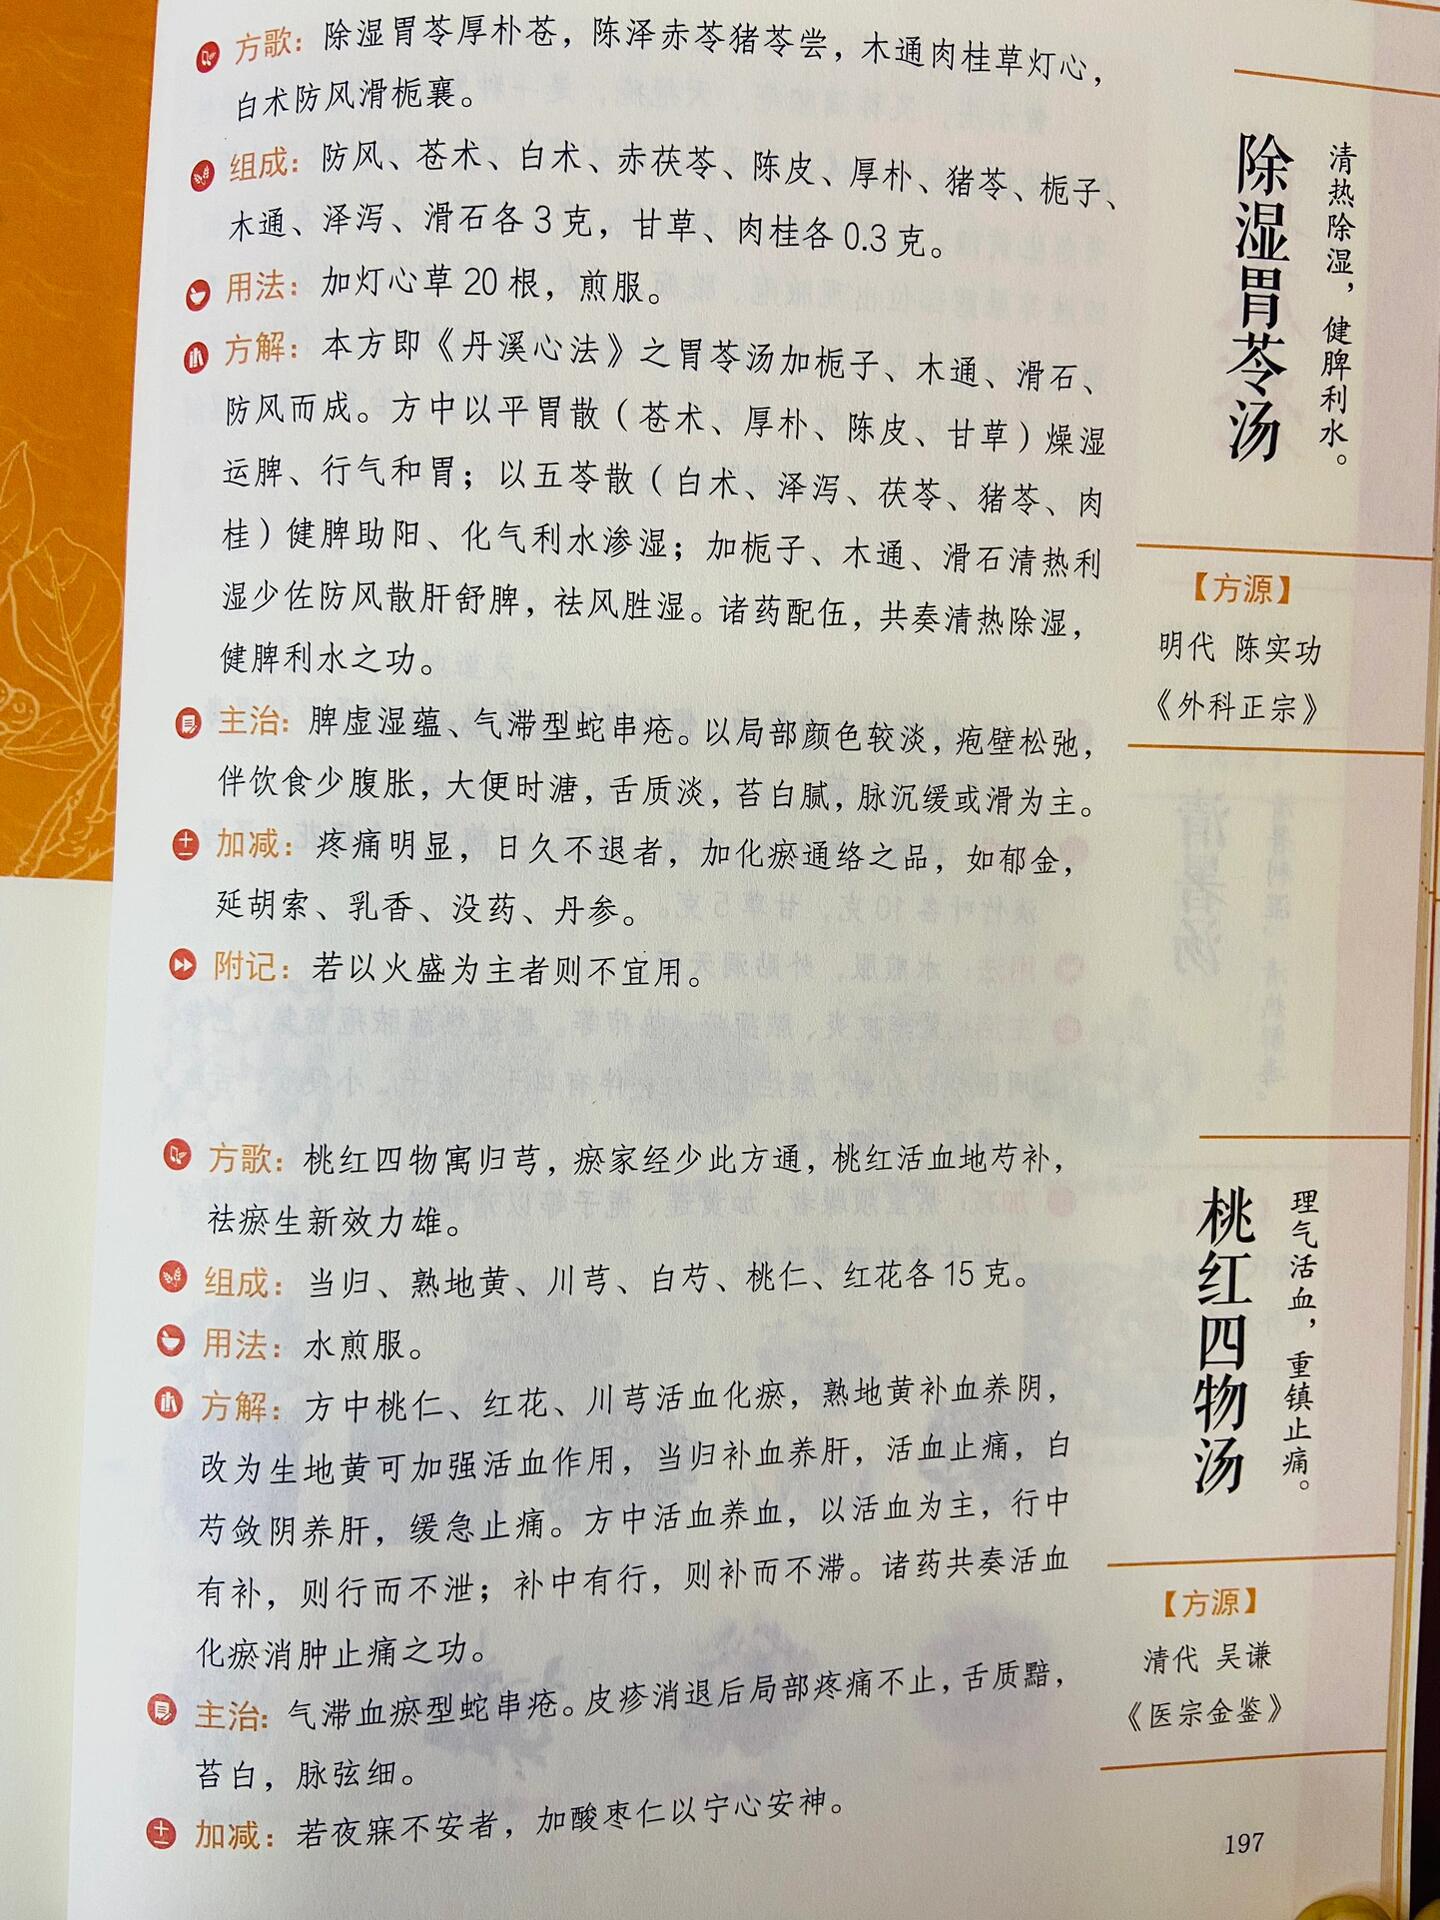 除湿胃苓汤
清热除湿，健脾利水。
【方源】
明代 陈实功
《外科正宗》
方歌：除湿胃苓厚朴苍，陈泽赤苓猪苓尝，木通肉桂草灯心，
白术防风滑栀襄。
组成：防风、苍术、白术、赤茯苓、陈皮、厚朴、猪苓、栀子、
木通、泽泻、滑石各3克，甘草、肉桂各0.3克。
用法：加灯心草20根，煎服。
方解：本方即《丹溪心法》之胃苓汤加栀子、木通、滑石、
防风而成。方中以平胃散（苍术、厚朴、陈皮、甘草）燥湿
运脾、行气和胃；以五苓散（白术、泽泻、茯苓、猪苓、肉
桂）健脾助阳、化气利水渗湿；加栀子、木通、滑石清热利
湿少佐防风散肝舒脾，祛风胜湿。诸药配伍，共奏清热除湿，
健脾利水之功。
主治：脾虚湿蕴、气滞型蛇串疮。以局部颜色较淡，疱壁松弛，
伴饮食少腹胀，大便时溏，舌质淡，苔白腻，脉沉缓或滑为主。
加减：疼痛明显，日久不退者，加化瘀通络之品，如郁金，
延胡索、乳香、没药、丹参。
附记：若以火盛为主者则不宜用。
桃红四物汤
理气活血，重镇止痛。
【方源】
清代 吴谦
《医宗金鉴》
方歌：桃红四物寓归芎，瘀家经少此方通，桃红活血地芍补，
祛瘀生新效力雄。
组成：当归、熟地黄、川芎、白芍、桃仁、红花各15克。
用法：水煎服。
方解：方中桃仁、红花、川芎活血化瘀，熟地黄补血养阴，
改为生地黄可加强活血作用，当归补血养肝，活血止痛，白
芍敛阴养肝，缓急止痛。方中活血养血，以活血为主，行中
有补，则行而不泄；补中有行，则补而不滞。诸药共奏活血
化瘀消肿止痛之功。
主治：气滞血瘀型蛇串疮。皮疹消退后局部疼痛不止，舌质黯，
苔白，脉弦细。
加减：若夜寐不安者，加酸枣仁以宁心安神。
197